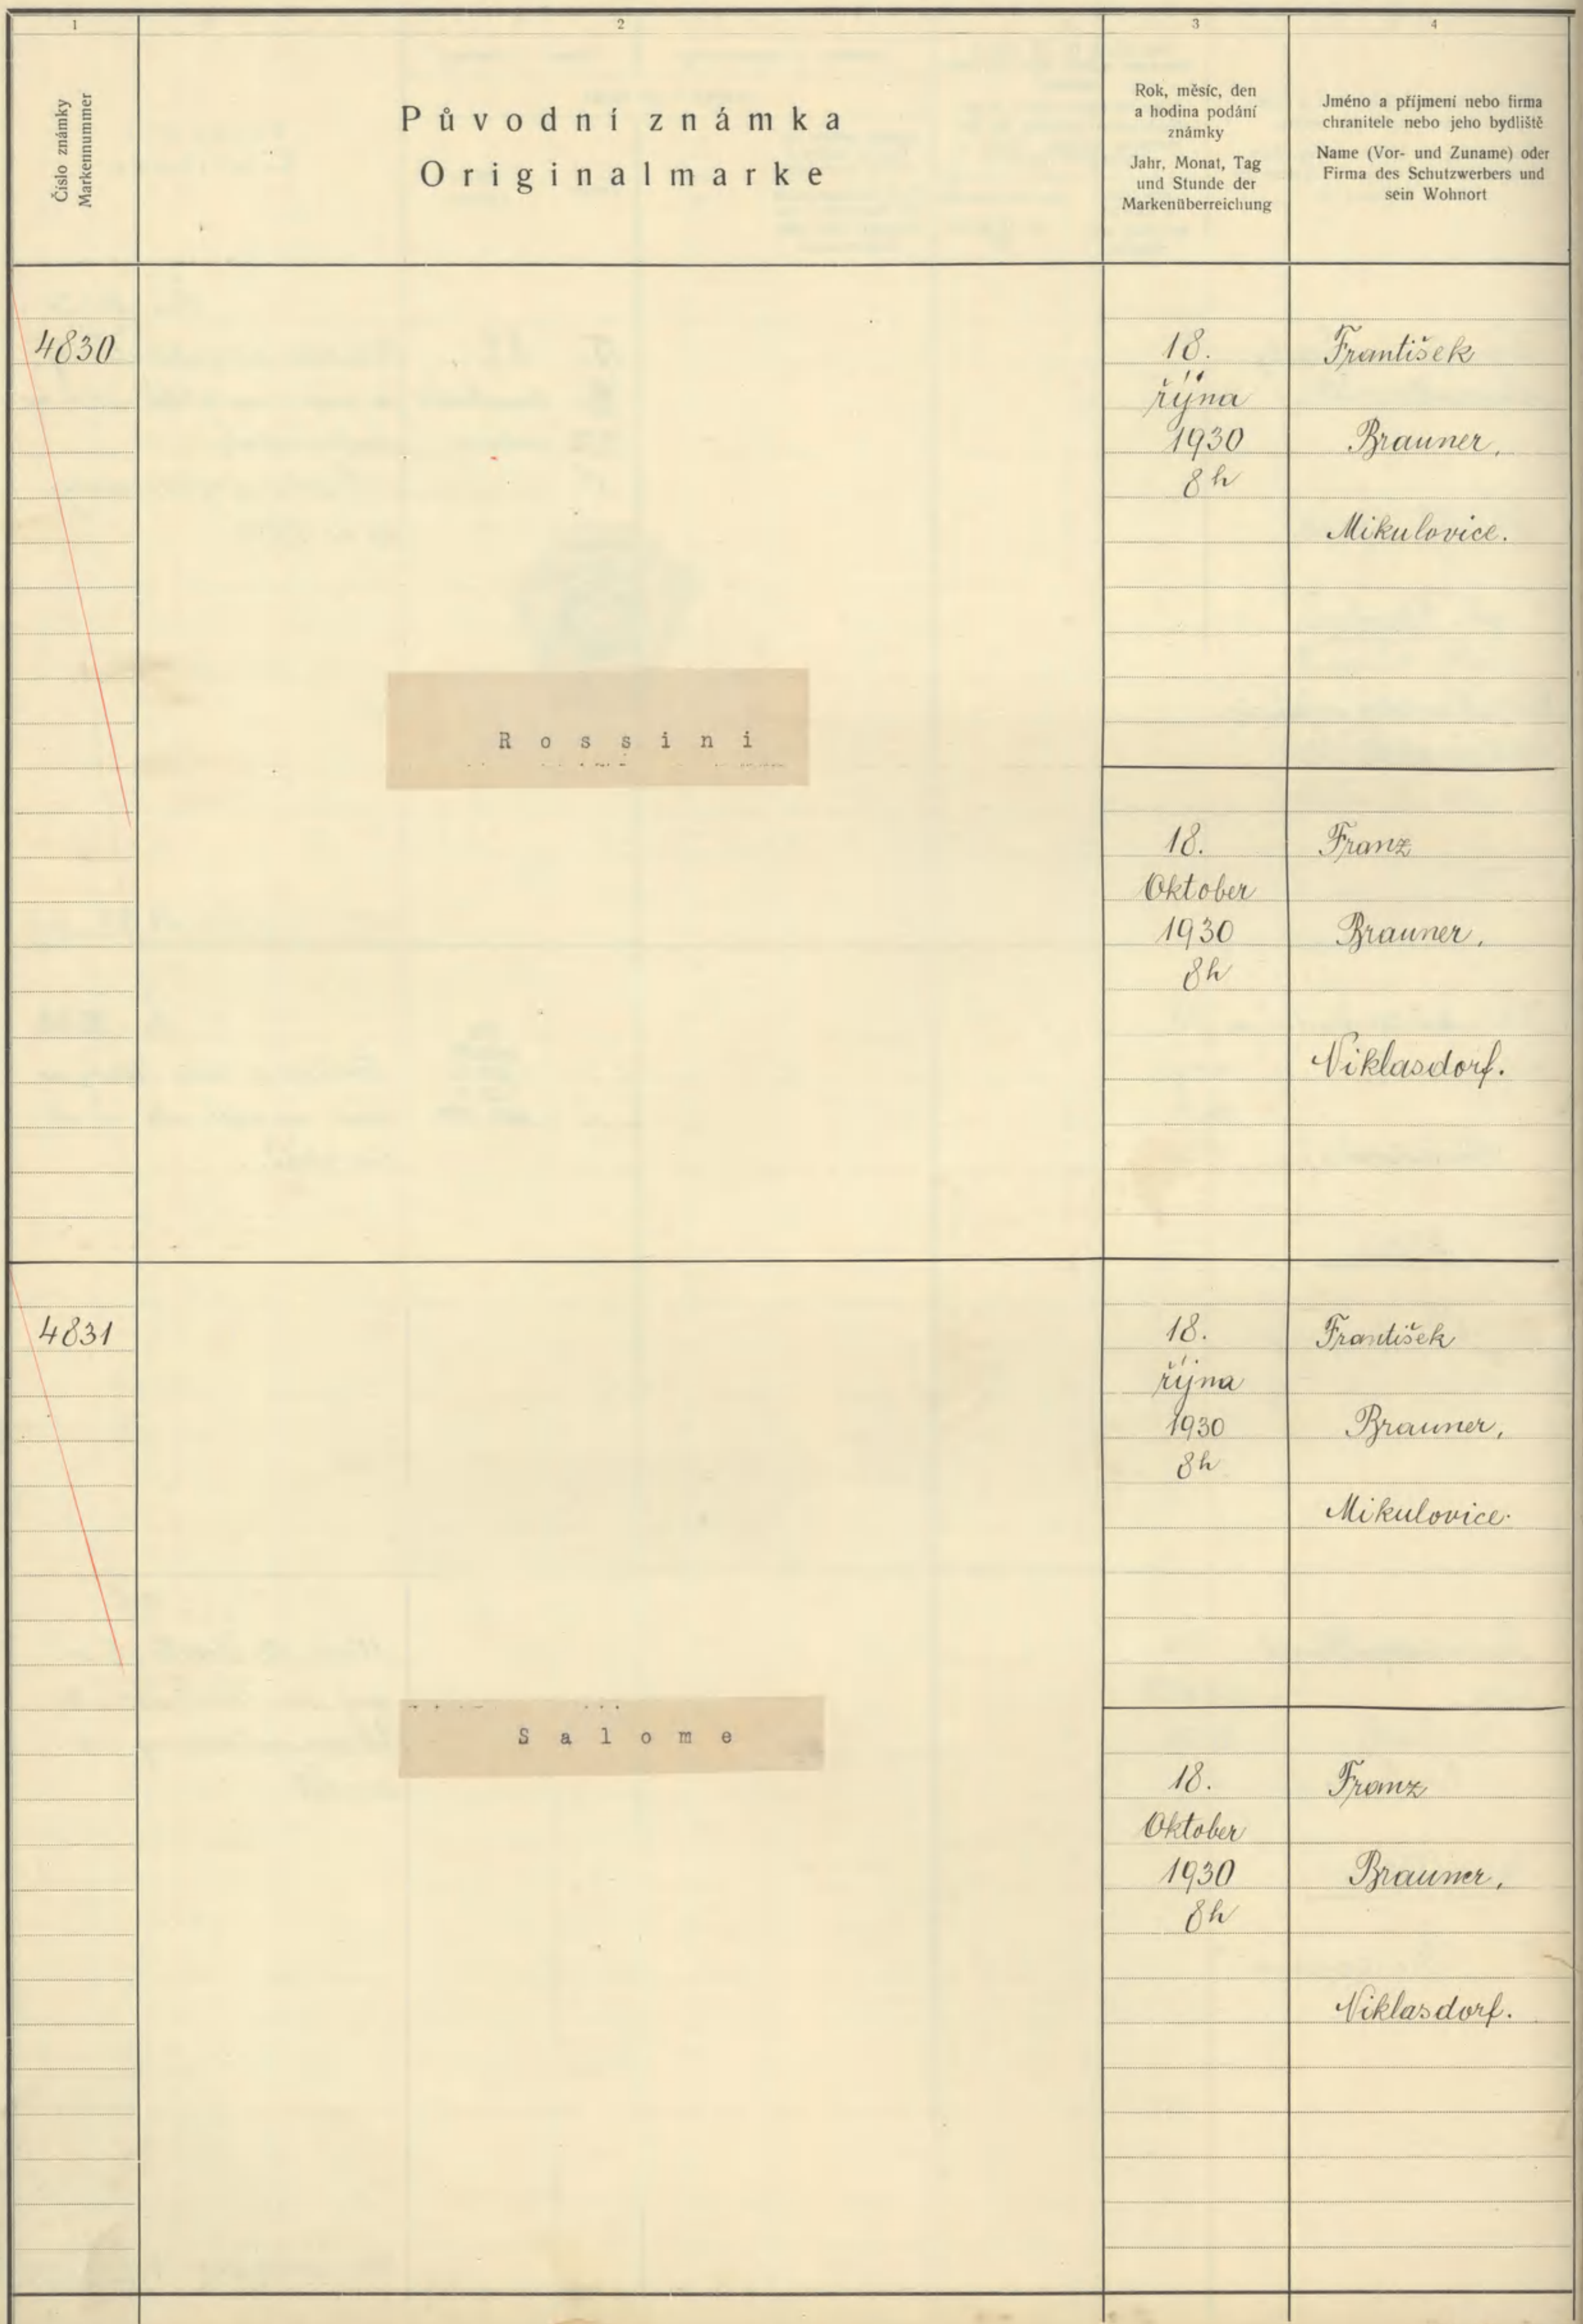 1
2
3
4
Číslo známky
Markennummer
Původní známka
Originalmarke
Rok, měsíc, den
a hodina podání
známky
Jahr, Monat, Tag
und Stunde der
Markenüberreichung
Jméno a příjmení nebo firma
chranitele nebo jeho bydliště
Name (Vor- und Zuname) oder
Firma des Schutzwerbers und
sein Wohnort
4830
18.
října
1930
8h
František
Brauner,
Mikulovice.
Rossini
18.
Oktober
1930
8h
Franz
Brauner,
Niklasdorf.
4831
18.
října
1930
8h
František
Brauner,
Mikulovice.
Salome
18.
Oktober
1930
8h
Franz
Brauner,
Niklasdorf.